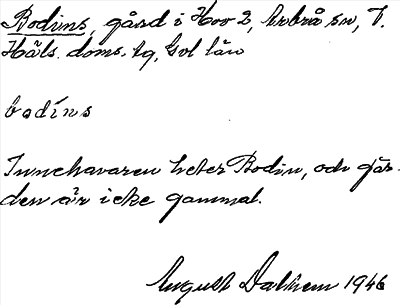 Bodins, gård i Hov 2, Arbrå sn, V.
Häls. doms. tg, Gvl län
bodíns
Innehavaren heter Bodin, och går-
den är icke gammal.
August Dalhem 1946